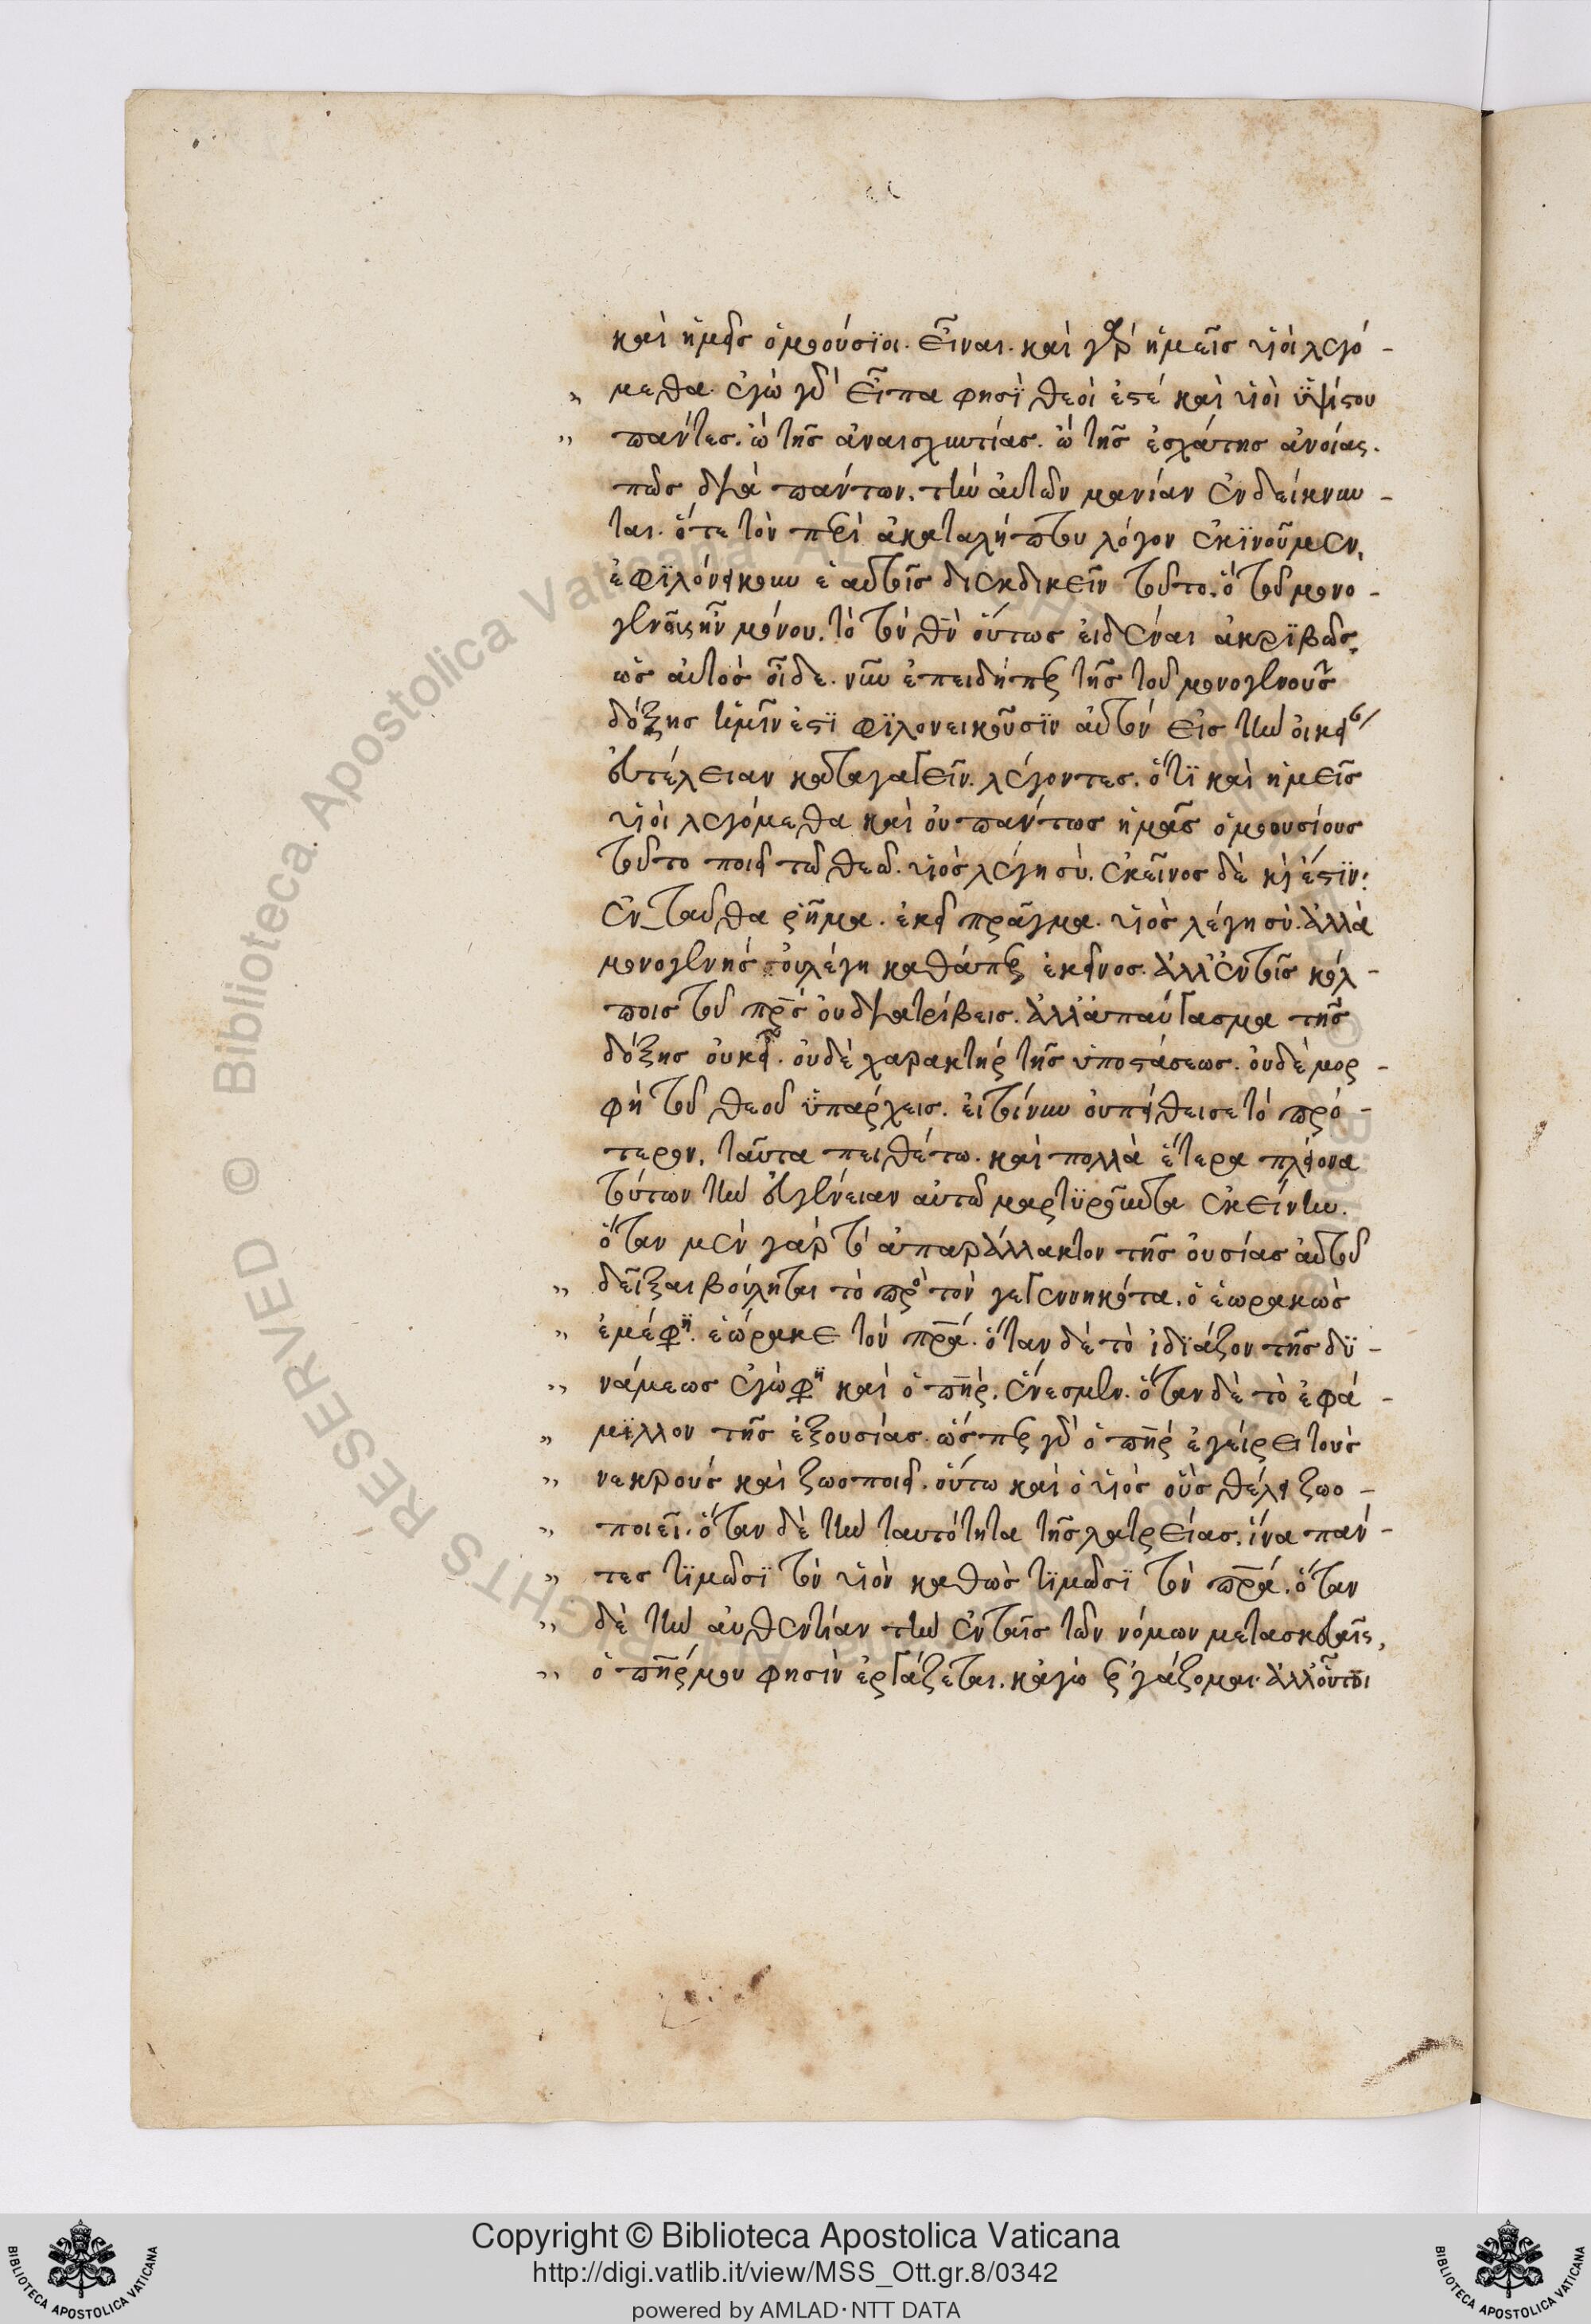 καὶ ἡμᾶς ὁμοούσϊοι. εἶναι. καὶ γὰρ ἡμεῖς υἱοὶ λεγό-
„ μεθα. ἐγὼ γὰρ εἶπα φησῒ θεοὶ ἐστέ καὶ υἱοὶ ὑψίστου
„ πάντες. ὢ τῆς ἀναισχυντίας. ὢ τῆς ἐσχάτης ἀνοίας.
πῶς διὰ πάντων, τὴν αὐτῶν μανίαν ἐνδείκνυν-
ται. ὅτε τὸν περὶ ἀκαταλήπτου λόγον ἐκϊνοῦμεν,
ἐφϊλόνεικουν ἑαυτοῖς διεκδικεῖν τοῦτο. ὃ τοῦ μονο-
γενοῦς ἦν μόνου. τὸ τὸν θν οὕτως εἰδέναι ἀκρϊβῶς,
ὡς αὐτὸς οἶδε. νῦν ἐπειδήπερ τῆς τοῦ μονογενοῦς
δόξης ἡμῖν ἐστϊ φϊλονεικοῦσϊν αὐτὸν εἰς τὴν οἰκείαν
εὐτέλειαν καταγαγεῖν. λέγοντες. ὅτϊ καὶ ἡμεῖς
υἱοὶ λεγόμεθα καὶ οὐ πάντως ἡμᾶς ὁμοουσίους
τοῦτο ποιεῖ τῶ θεῶ. υἱὸς λέγη σὺ. ἐκεῖνος δὲ κὶ ἔστϊν:
ἐνταῦθα ῥῆμα. ἐκεῖ πρᾶγμα. υἱὸς λέγη σὺ. ἀλλὰ
μονογενὴς οὐ λέγη καθάπερ ἐκεῖνος. ἀλλ' ἐν τοῖς κόλ-
ποις τοῦ πρς οὐ διατρίβεις. ἀλλ' ἀπαύγασμα τῆς
δόξης οὐκ εἶ. οὐδὲ χαρακτὴρ τῆς ὑποστάσεως. οὐδὲ μορ-
φὴ τοῦ θεοῦ ὑπάρχεις. εἰ τοίνυν οὐ πείθει σε τὸ πρό-
τερον, ταῦτα πειθέτω. καὶ πολλὰ ἕτερα πλείονα
τούτων τὴν εὐγένειαν αὐτῶ μαρτϋροῦντα ἐκείνην.
ὅταν μὲν γὰρ τὸ ἀπαράλλακτον τῆς οὐσίας αὐτοῦ
„ δεῖξαι βούληται τὸ πρὸς τὸν γεγεννηκότα. ὁ ἑωρακὼς
„ ἐμέ φη. ἑώρακε τὸν πρα. ὅταν δὲ τὸ ἰδϊάζον τῆς δϋ-
„ νάμεως ἐγὼ φη καὶ ὁ πηρ. ἕν ἐσμεν. ὅταν δὲ τὸ ἐφά-
„ μϊλλον τῆς ἐξουσίας. ὥσπερ γὰρ ὁ πηρ ἐγείρει τοὺς
„ νεκροὺς καὶ ζωοποιεῖ. οὕτω καὶ ὁ υἱὸς οὓς θέλει ζωο-
„ ποιεῖ. ὅταν δὲ τὴν ταυτότητα τῆς λατρείας. ἵνα πάν-
„ τες τϊμῶσϊ τὸν υἱὸν καθὼς τϊμῶσϊ τὸν πρα. ὅταν
„ δὲ τὴν αὐθεντίαν τὴν ἐν ταῖς τῶν νόμων μετασκευαῖς,
„ ὁ πηρ μου φησὶν ἐργάζεται. κἀγὼ ἐργάζομαι. ἀλλ' οὗτοι
Copyright © Biblioteca Apostolica Vaticana
http://digi.vatlib.it/view/MSS_Ott.gr.8/0342
powered by AMLAD·NTT DATA